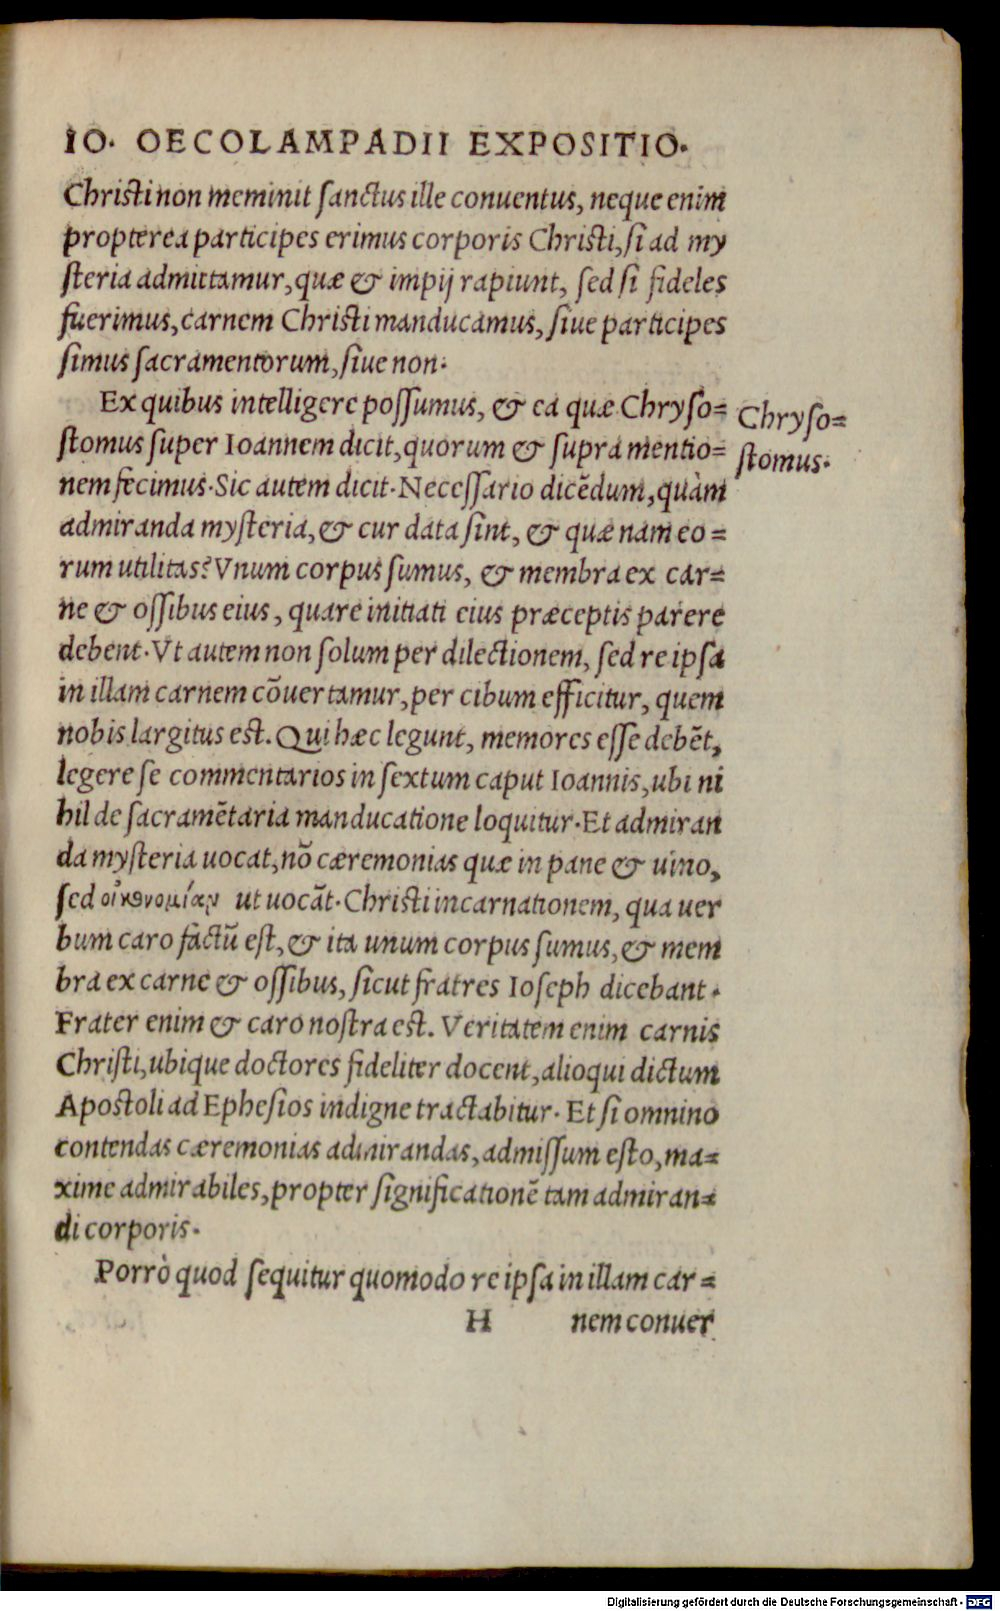 IO. OECOLAMPADII EXPOSITIO.
Christi non meminit ſanctus ille conuentus, neque enim
propterea participes erimus corporis Christi, ſi ad my
ſteria admittamur, quæ & impij rapiunt, ſed ſi fideles
fuerimus, carnem Christi manducamus, ſiue participes
ſimus ſacramentorum, ſiue non.
Ex quibus intelligere poſſumus, & ea quæ Chryſo=
ſtomus ſuper Ioannem dicit, quorum & ſupra mentio=
nem fecimus. Sic autem dicit. Neceſſario dicẽdum, quàm
admiranda myſteria, & cur data ſint, & quæ nam eo=
rum utilitas? Vnum corpus ſumus, & membra ex car=
ne & oſſibus eius, quare initiati eius præceptis parere
debent. Vt autem non ſolum per dilectionem, ſed re ipſa
in illam carnem cõuertamur, per cibum efficitur, quem
nobis largitus est. Qui hæc legunt, memores eſſe debẽt,
legere ſe commentarios in ſextum caput Ioannis, ubi ni
hil de ſacramẽtaria manducatione loquitur. Et admiran
da myſteria uocat, nõ cæremonias quæ in pane & uino,
ſed οἰκονομίαν ut uocãt. Christi incarnationem, qua uer
bum caro factũ eſt, & ita unum corpus ſumus, & mem
bra ex carne & oſſibus, ſicut fratres Ioſeph dicebant.
Frater enim & caro noſtra est. Veritatem enim carnis
Chriſti, ubique doctores fideliter docent, alioqui dictum
Apostoli ad Ephesios indigne tractabitur. Et ſi omnino
contendas cæremonias admirandas, admiſſum eſto, ma=
xime admirabiles, propter ſignificationẽ tam admiran=
di corporis.
Porrò quod ſequitur quomodo re ipſa in illam car=
H nem conuer
Chryſo=
ſtomus.
Digitalisierung gefördert durch die Deutsche Forschungsgemeinschaft - DFG